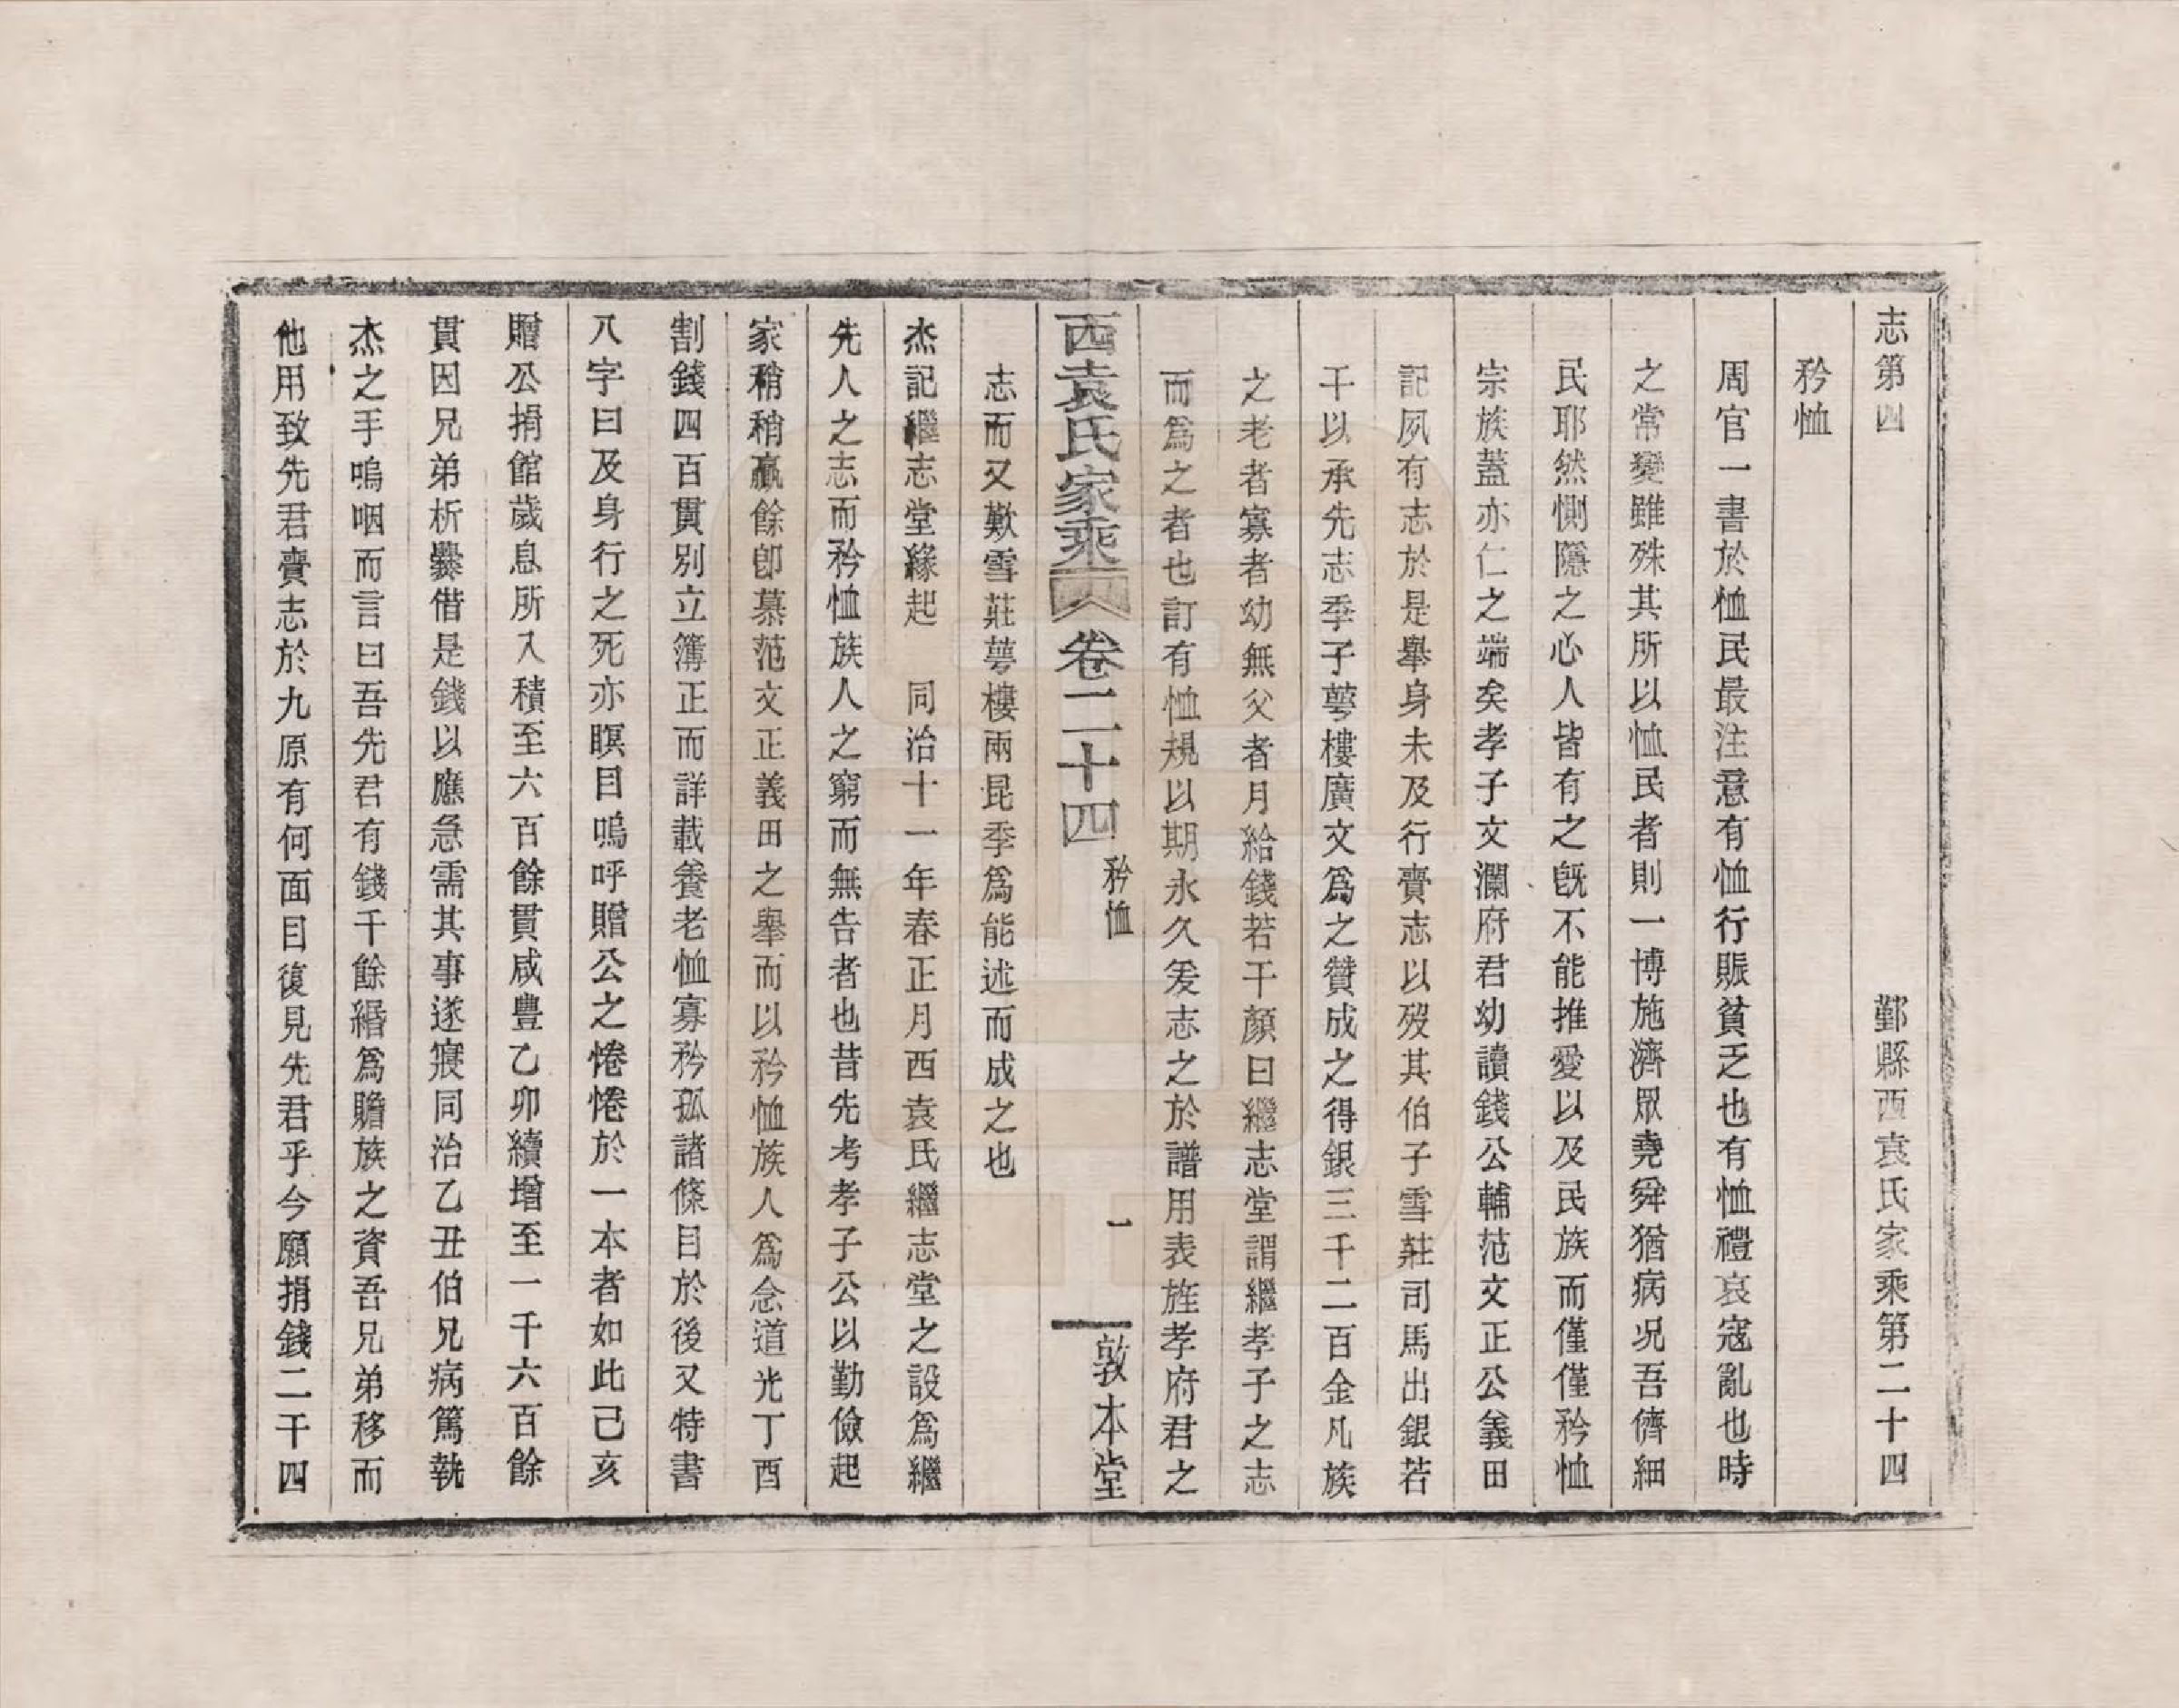 志第四　鄞縣西袁氏家乘第二十四
矜恤
周官一書於恤民最注意有恤行賑貧乏也有恤禮哀寇亂也時
之常變雖殊其所以恤民者則一博施濟眾堯舜猶病况吾儕細
民耶然惻隱之心人皆有之旣不能推愛以及民族而僅僅矜恤
宗族蓋亦仁之端矣孝子文瀾府君幼讀錢公輔范文正公義田
記夙有志於是舉身未及行賷志以歿其伯子雪莊司馬出銀若
干以承先志季子蕚樓廣文爲之贊成之得銀三千二百金凡族
之老者寡者幼無父者月給錢若干顏曰繼志堂謂繼孝子之志
而爲之者也訂有恤規以期永久爰志之於譜用表旌孝府君之
志而又歎雪莊蕚樓兩昆季爲能述而成之也
西袁氏家乘　卷二十四　矜恤　一　敦本堂
杰記繼志堂緣起　同治十一年春正月西袁氏繼志堂之設爲繼
先人之志而矜恤族人之窮而無告者也昔先考孝子公以勤儉起
家稍稍贏餘卽慕范文正義田之舉而以矜恤族人爲念道光丁酉
割錢四百貫別立簿正而詳載養老恤寡矜孤諸條目於後又特書
八字曰及身行之死亦瞑目嗚呼贈公之惓惓於一本者如此己亥
贈公捐館歲息所入積至六百餘貫咸豐乙卯續增至一千六百餘
貫因兄弟析爨借是錢以應急需其事遂寢同治乙丑伯兄病篤執
杰之手嗚咽而言曰吾先君有錢千餘緡爲贍族之資吾兄弟移而
他用致先君賷志於九原有何面目復見先君乎今願捐錢二千四